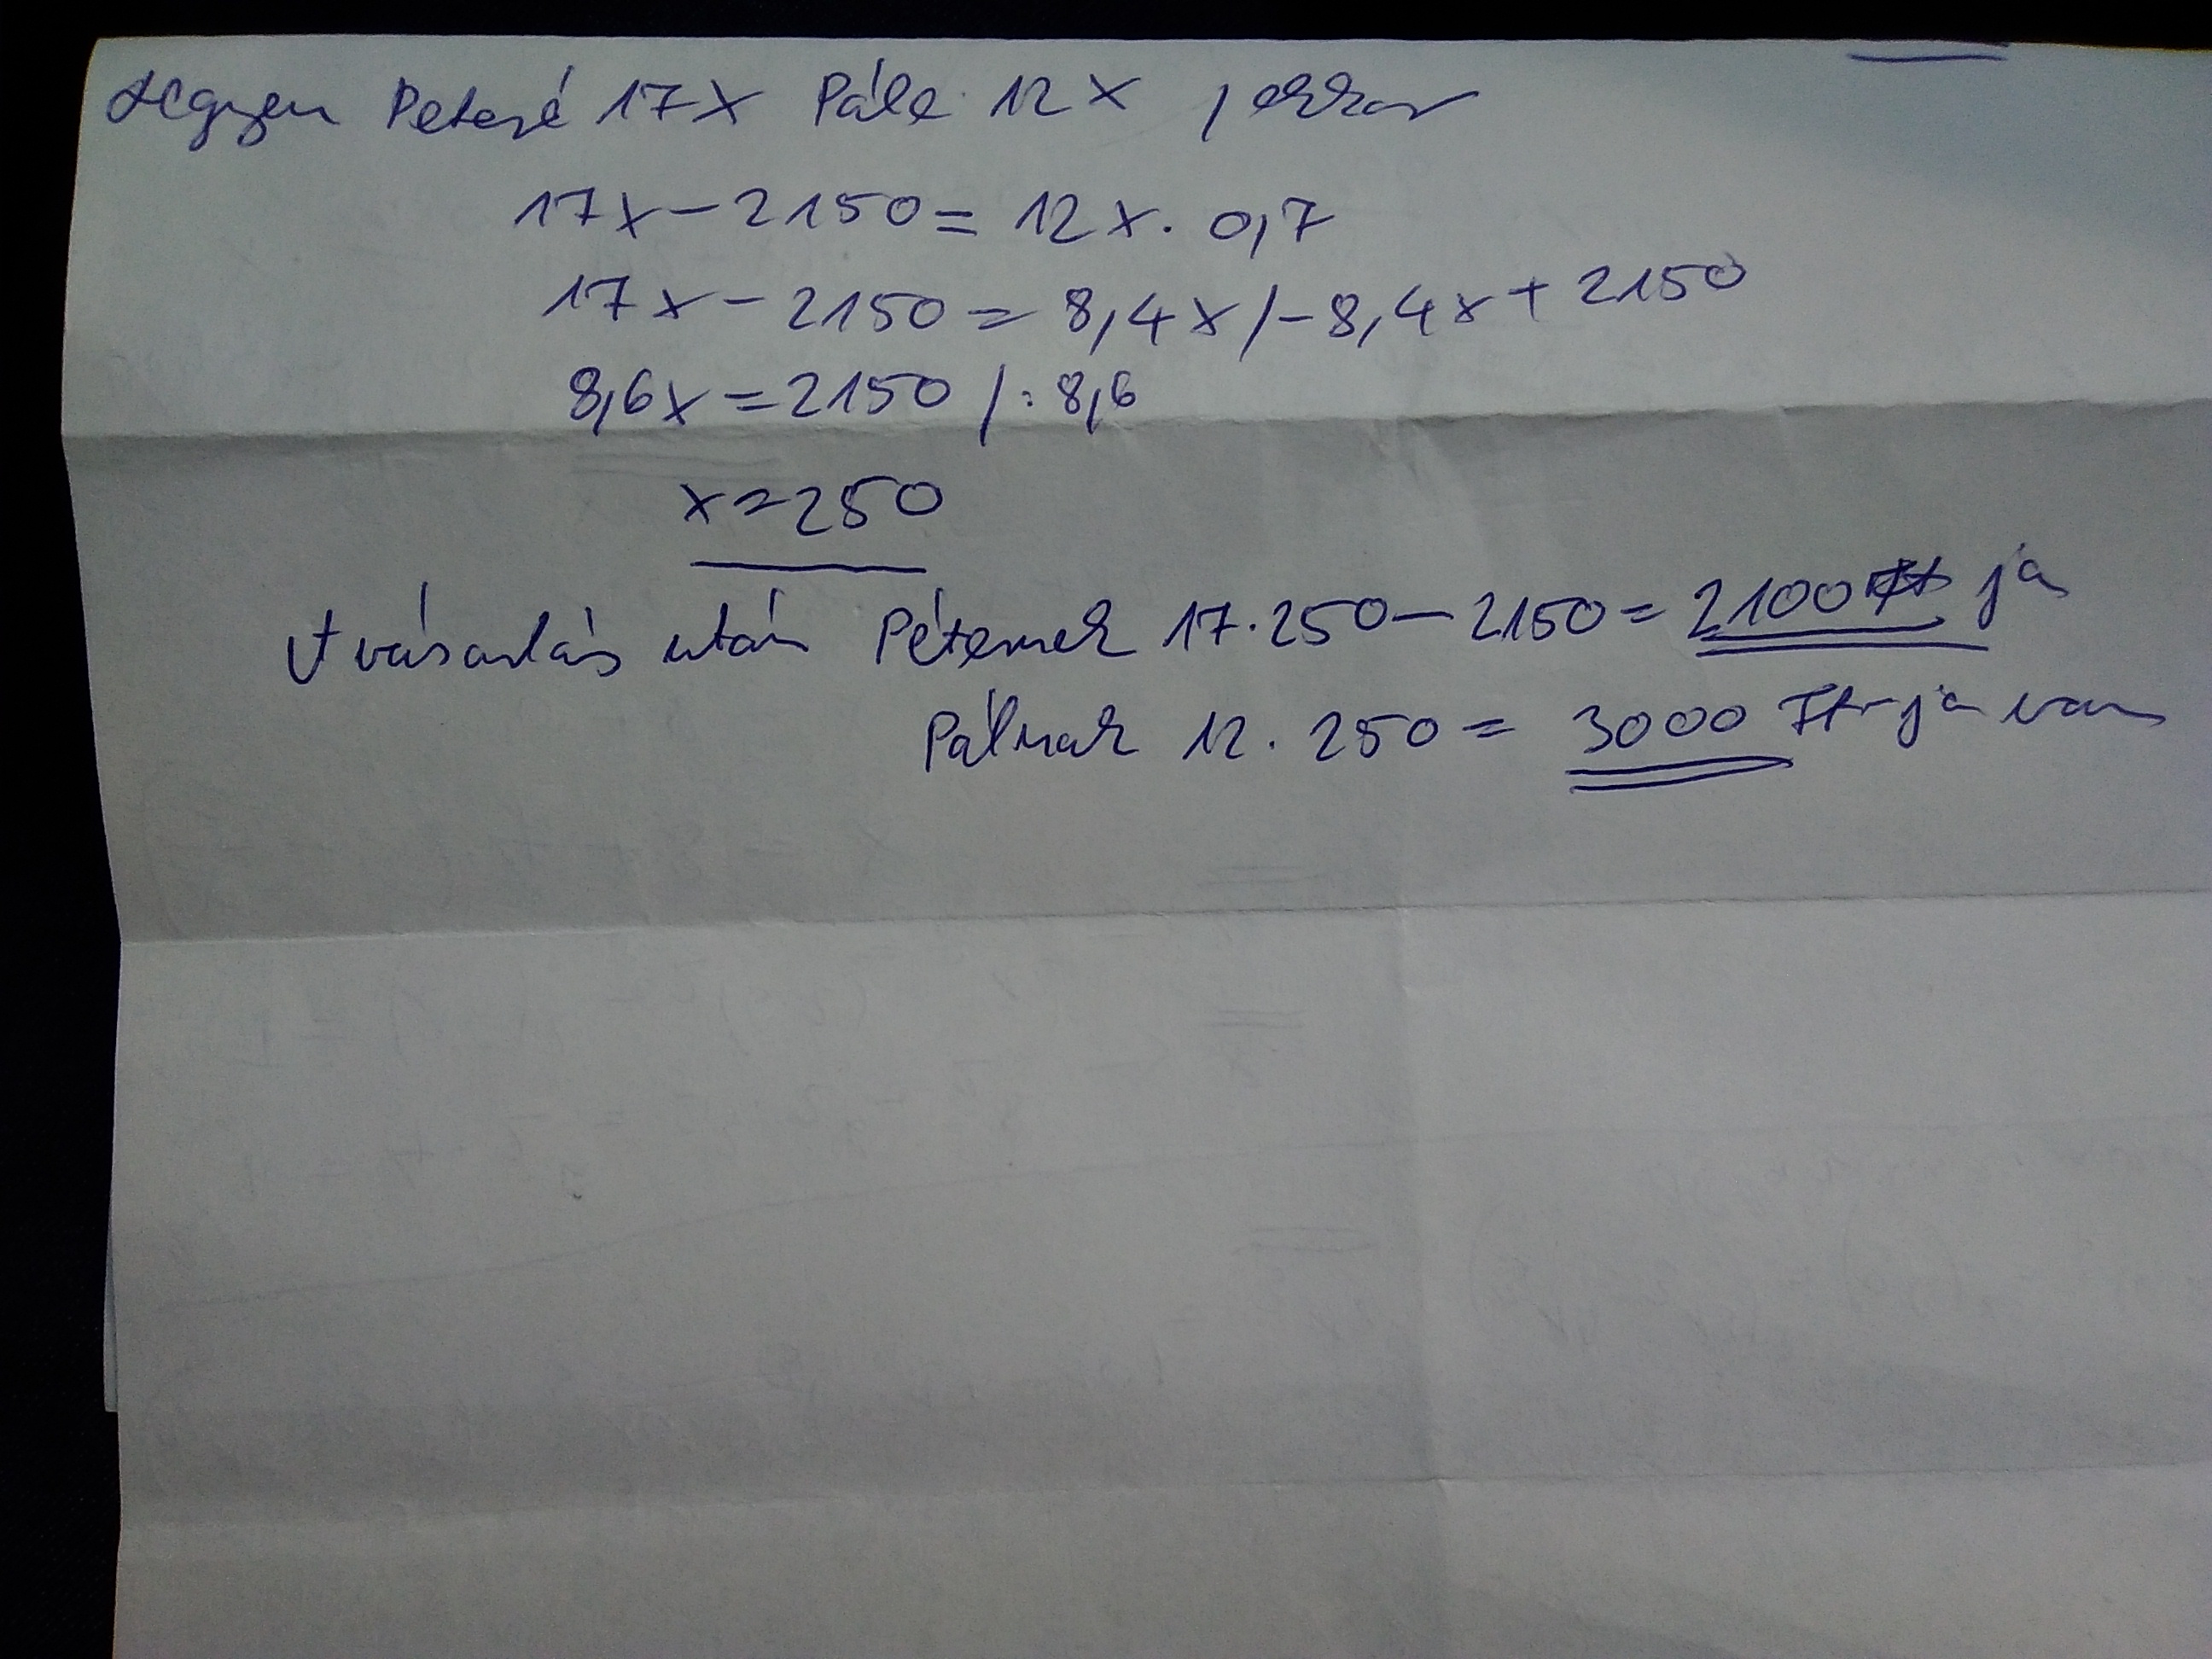 Legyen Peteré 17x Pále 12x, ekkor
17x - 2150 = 12x · 0,7
17x - 2150 = 8,4x /-8,4x + 2150
8,6x = 2150 /: 8,6
x = 250
A vásárlás után Péternek 17·250 - 2150 = 2100 Ft ja
Pálnak 12 · 250 = 3000 Ft-ja van